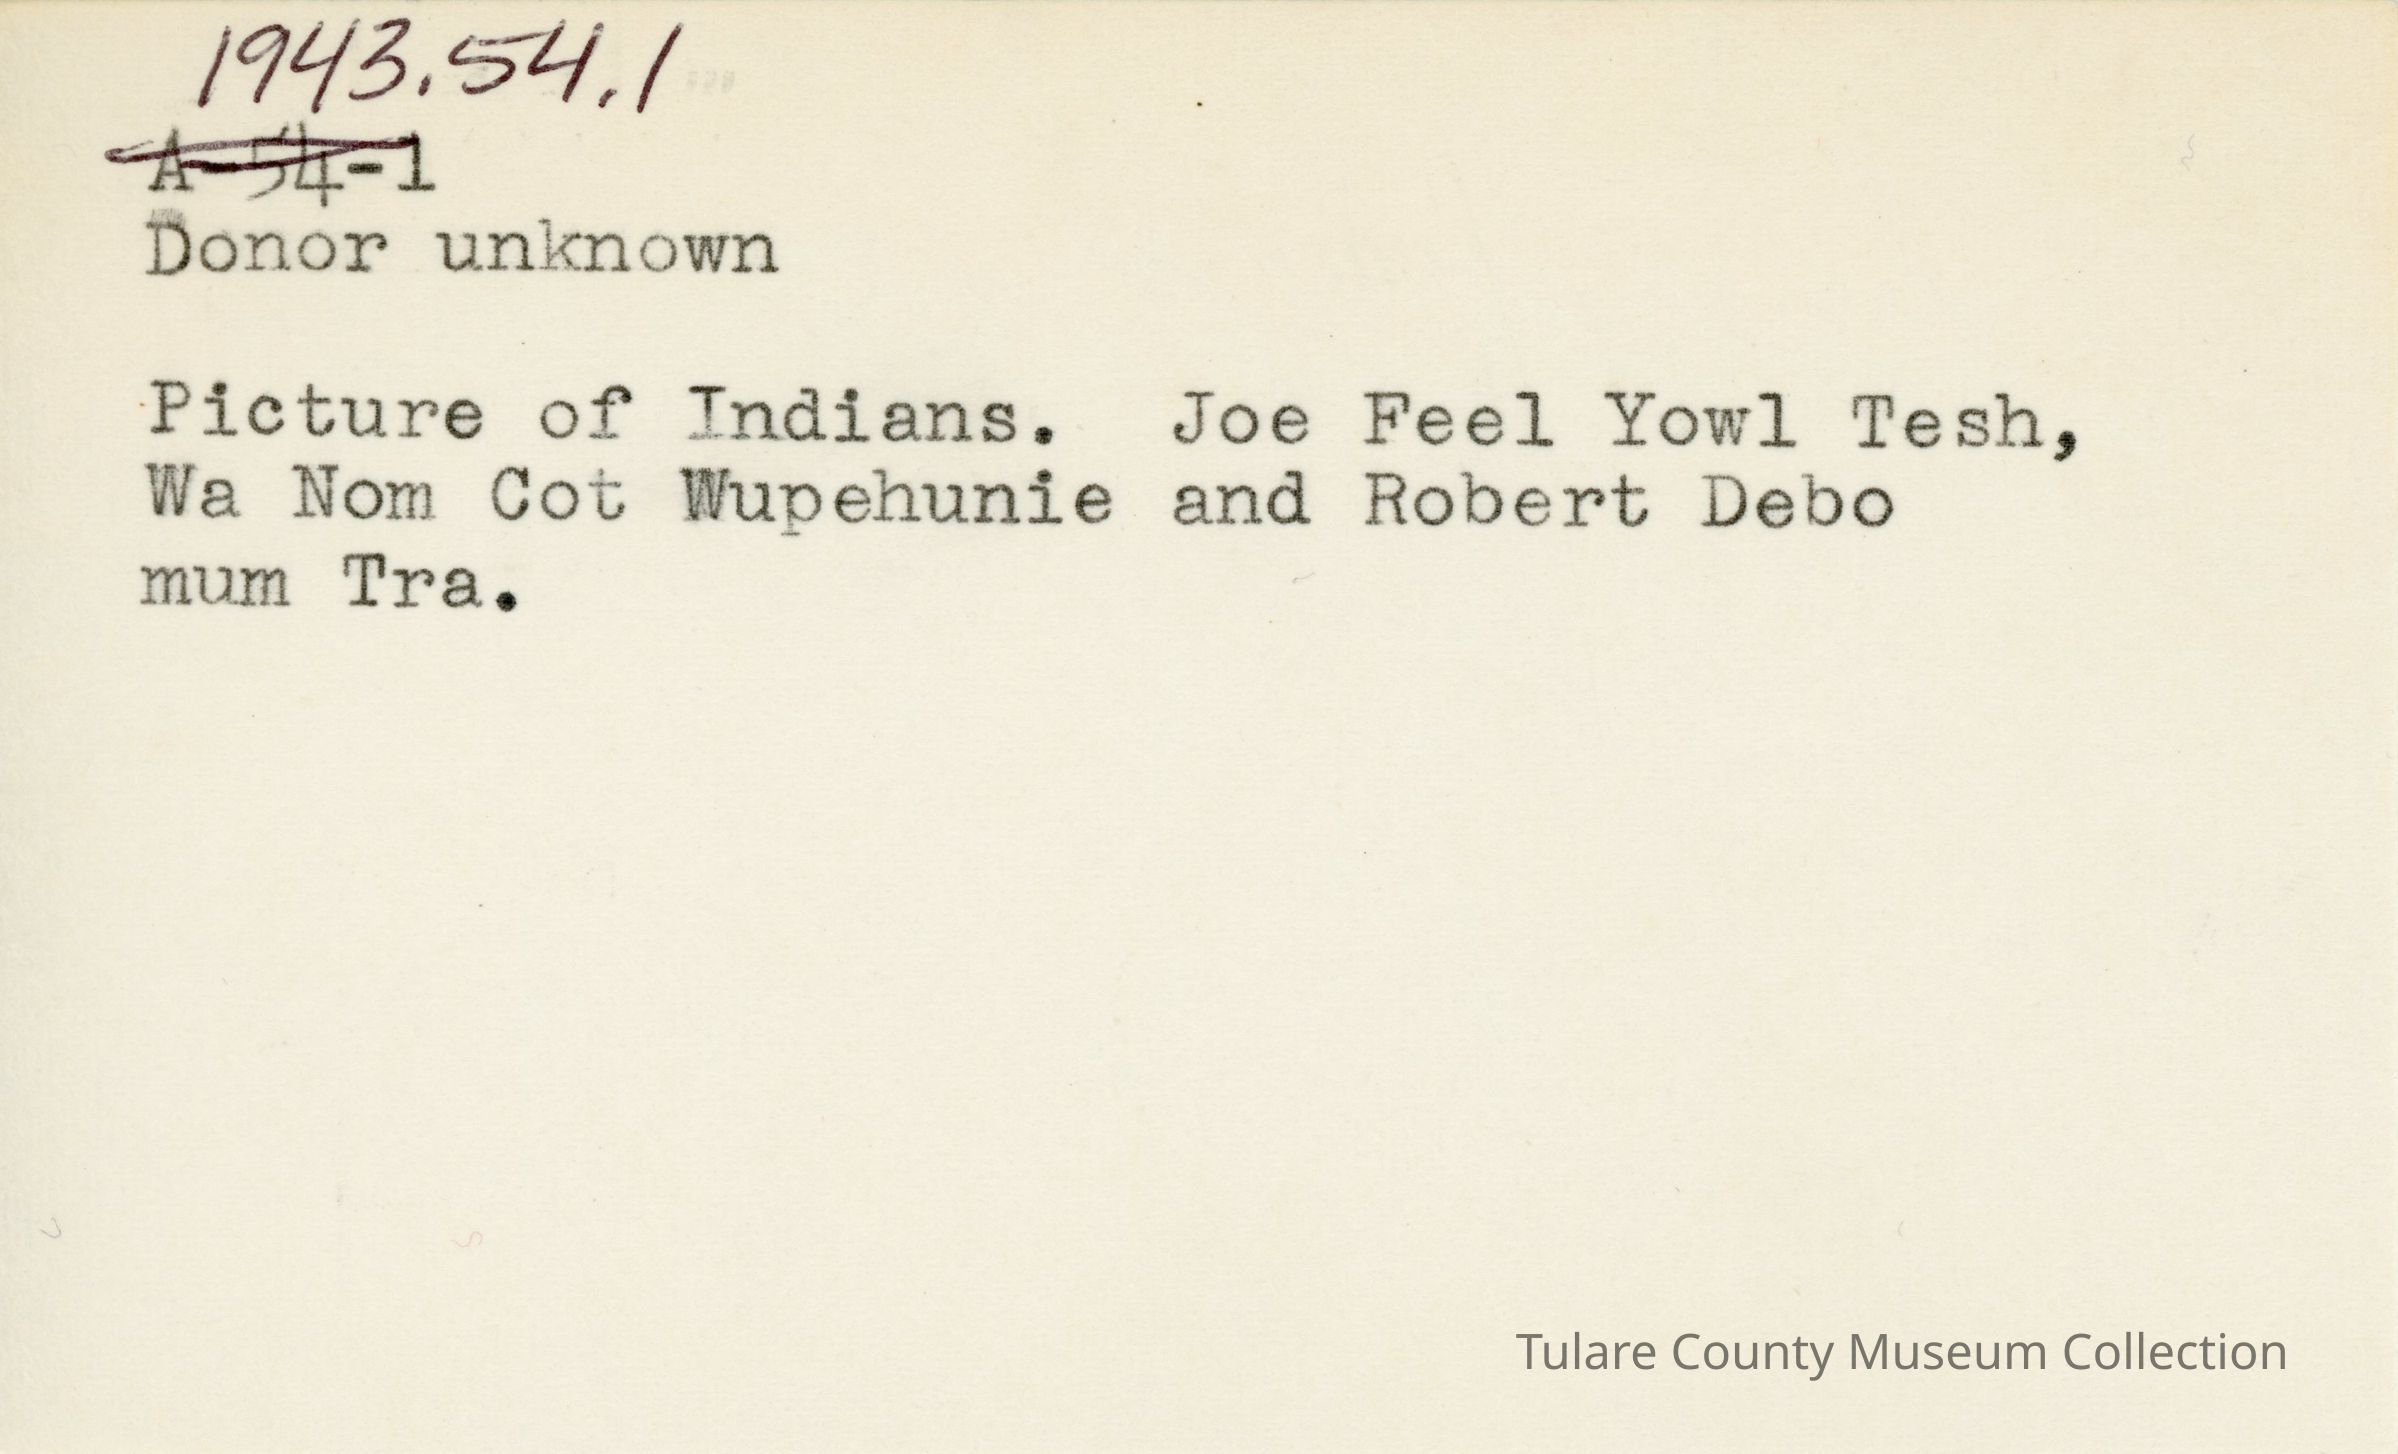 1943.54.1
A-54-1
Donor unknown
Picture of Indians.  Joe Feel Yowl Tesh,
Wa Nom Cot Wupehunie and Robert Debo
mum Tra.
Tulare County Museum Collection